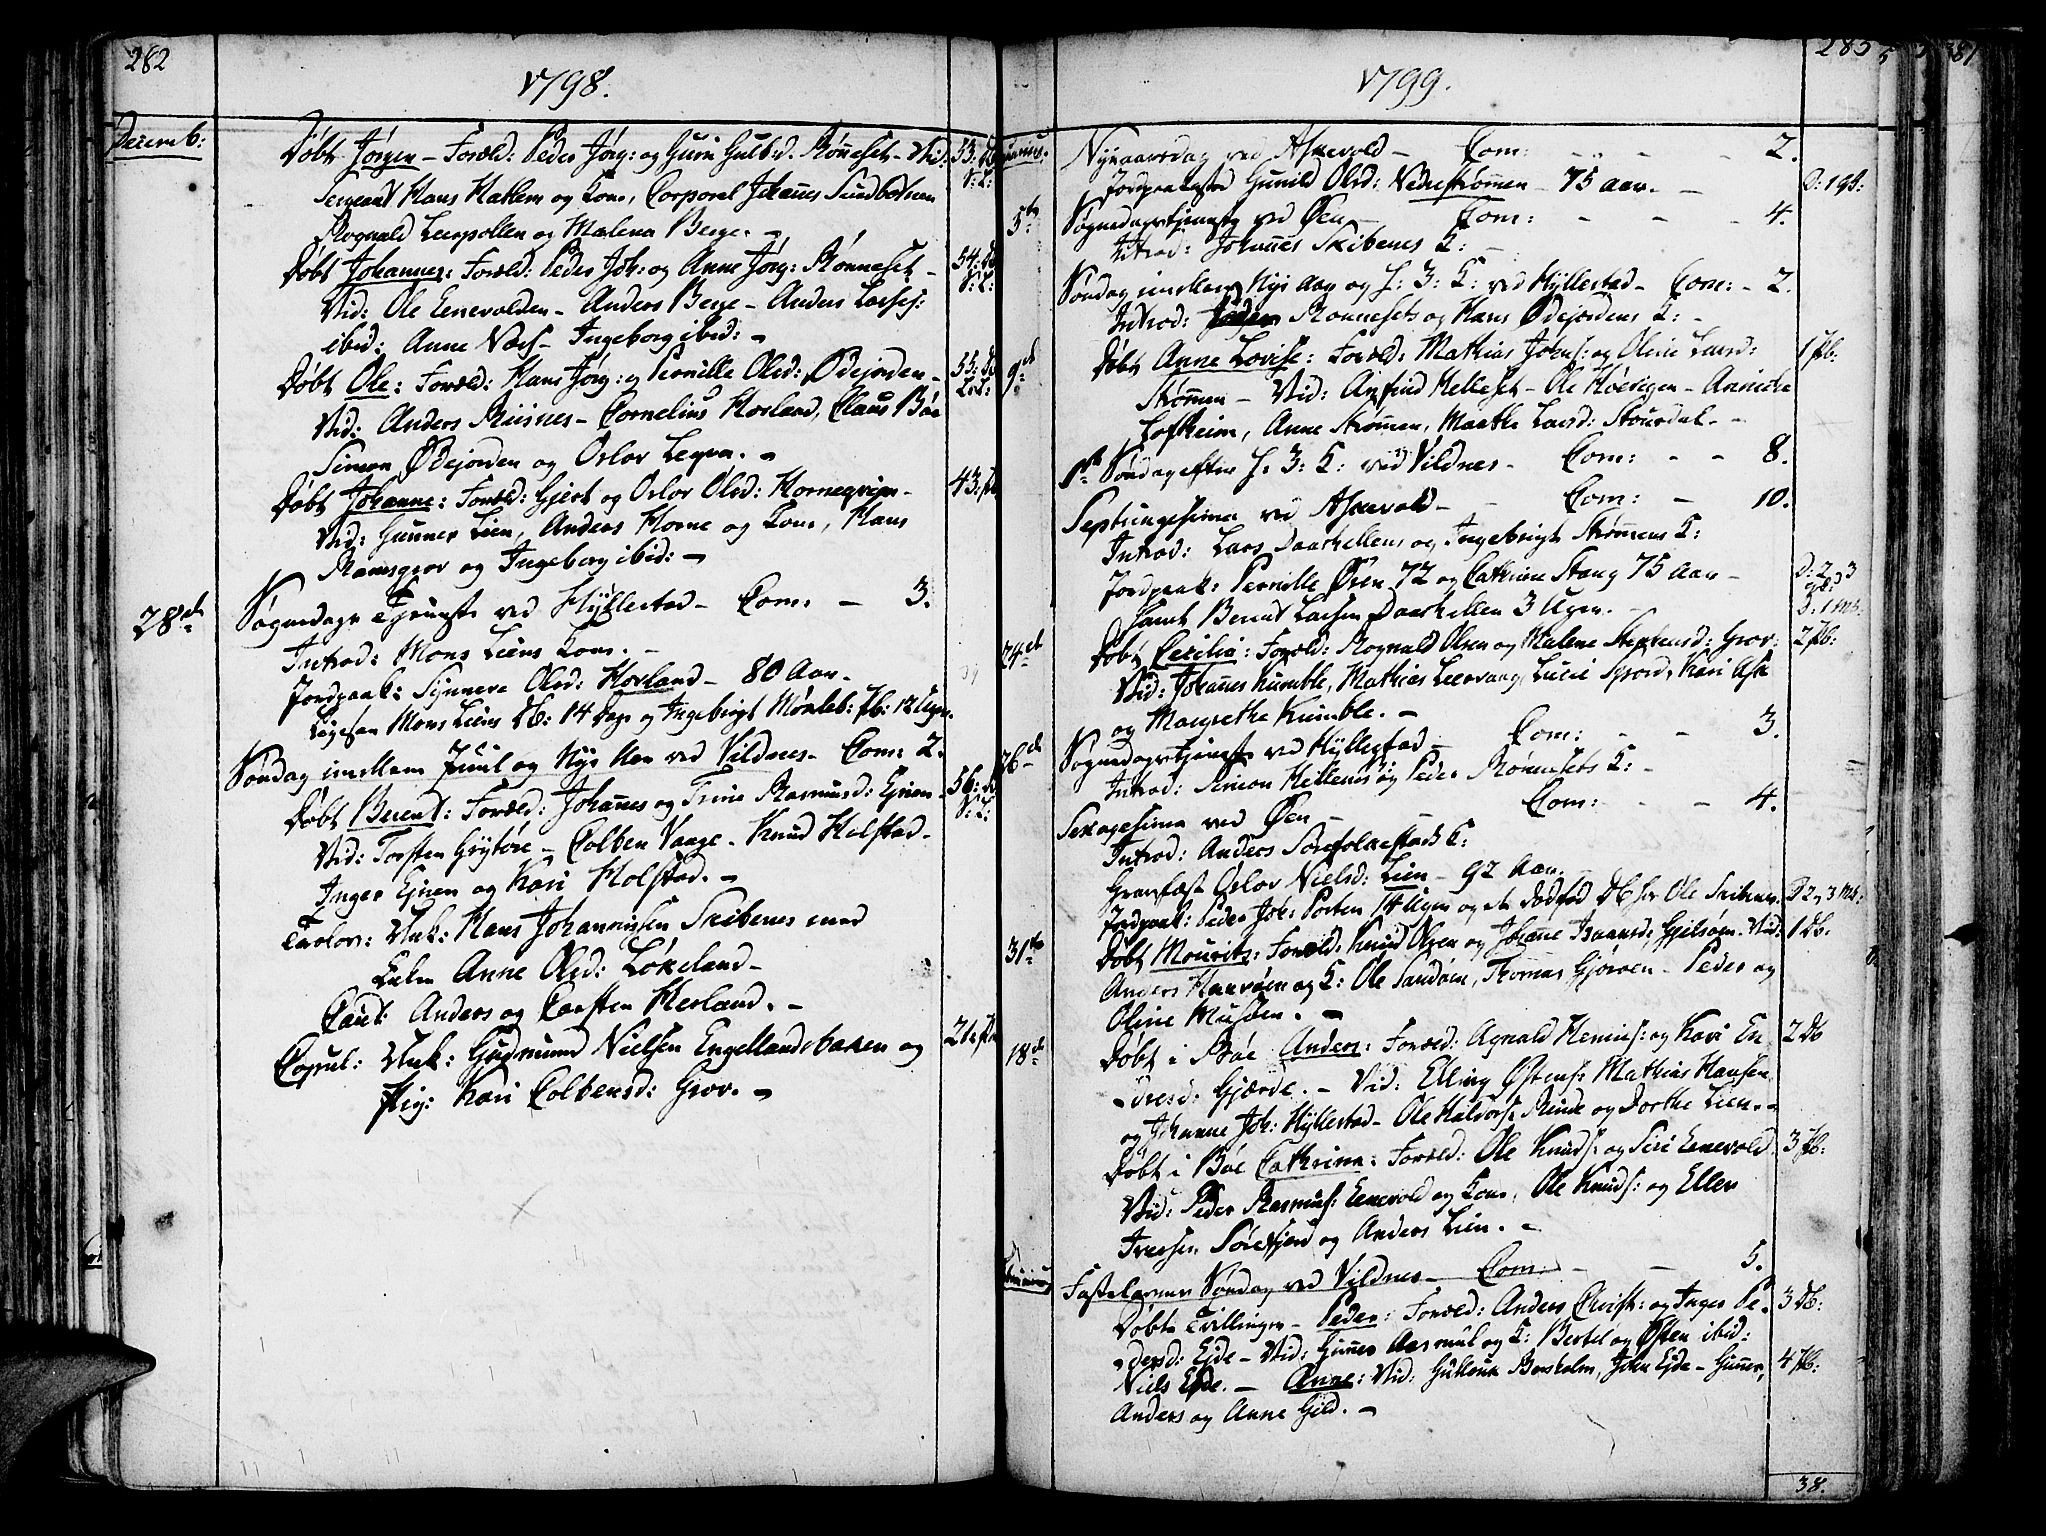 282
1798.
Decemb:
Døbt Jørgen – Foræld: Peder Jørg: og Guri Gulbrd. Rønneset – Vid: 53:
Sergeant Hans Hatlem og Kone, Corporal Johañes Sundbotnen
Rognald Leerpollen og Malena Berge. –
Døbt Johannes: Foræld: Peder Joh: og Anne Jørg: Rønneset – 54:
Vid: Ole Eenevolden – Anders Berge – Anders Larses:
ibid: Anne Næs – Ingeborg ibid: –
Døbt Ole: Foræld: Hans Jørg: og Pernille Olsd: Ødejorden – 55:
Vid: Anders Risnes – Cornelius Hovland, Claus Bøe
Simon Ødejorden og Oslov Leqva. –
Døbt Johanne: Foræld: Gjert og Oslov Olsd: Hornegrijen – 43:
Vid: Gunner Lien, Anders Horne og Kone, Hans
Ramsgrov og Ingeborg ibid: –
28de Søgnedags Tjeneste ved Hyllestad – Com: – 3.
Introd: Mons Liens Kone. –
Jordpaak: Synneve Olsd: Hovland – 80 Aar.
Ligesaa Mons Liens Db: 14 Dage og Ingebrigt Mørkeb: Pb: 12 Uger.
Søndag imellem Juul og Nyt Aar ved Vildnes – Com: 2.
Døbt Berent: Foræld: Johañes og Trine Rasmusd: Ejnen – 56:
Vid: Torsten Grytøre – Colben Vaage – Knud Holstad –
Inger Ejnen og Kari Holstad. –
Trolov: Unk: Hans Johannessen Skibenes med
Enken Anne Olsd: Løkeland –
Caut: Anders og Carsten Herland. –
Copul: Unk: Gudmund Nielsen Engellandsbakken og
Pig: Kari Colbensd: Grov. –
285
1799.
Nytaarsdag ved Askevold – Com: – 2.
Jordpaakaste Gunild Olsd: Nedrestrømmen – 75 Aar. –
5te Søgnedagstjeneste ved Øen – Com: – 4.
Introd: Johañes Skibenes K: –
Søndag imellem Nyt Aar og H: 3: K: ved Hyllestad – Com: – 2.
Introd: Rønnesets og Hans Ødejordens K: –
9de Døbt Anne Lovise: Foræld: Mathias Johs: og Oline Larsd: 1 Pb:
Strømmen – Vid: Anfind Helleset – Ole Høevigen – Annicke
Losheim, Anne Strømmen, Marthe Larsd: Stoursdal. –
1ste Søndag efter H: 3: K: ved Vildnes – Com: – – 8.
Septuagesima ved Askevold – Com: – 10.
Introd: Lars Daarkellens og Ingebrigt Strømens K:
Jordpaak: Pernille Øren 72 og Cathrine Stang 75 Aar –
samt Berent Larsen Daarhellen 3 Uger. –
24de Døbt Cecilia: Foræld: Rognald Olsen og Malene Steffensd: Grov: 2 Pb:
Vid: Johañes Kumble, Mathias Leervaag, Kari Ask
og Margrethe Kumble. –
26de Søgnedagstjeneste ved Hyllestad – Com: – – 3.
Introd: Simon Hellenes og Peder Rønnesets K: –
Sexagesima ved Øen – Com: – – 4.
Introd: Anders K:
Gravfæst Oslov Nielsd: Lien – 92 Aar. –
Jordpaak: Peder Joh: Porten 14 Uger og et dødfød Db for Ole Skibnes.
31te Døbt Mourits: Foræld: Knud Olsen og Johañe Isaacsd: Gjelsøen. Vid: 1 Db.
Anders Haarøen og K: Ole Sandøen, Thomas Gjørøen – Peder og
Oline Musøen. –
18de Døbt i Bøe Anders: Foræld: Agnald Henriks: og Kari An- 2 Db
dresd: Gjærde. – Vid: Elling Østens: Mathias Hansen
og Johanne Joh: Hyllestad – Ole Halvors: Rinde og Dorthe Lien. –
Døbt i Bøe Cathrina: Foræld: Ole Knuds: og Siri Eenevold 3 Pb:
Vid: Peder Rasmuss: Eenevold og Kone, Ole Knuds: og Ellen
Ivers: Sørefjord og Anders Lien. –
Fastelavens Søndag ved Vildnes – Com: – – 5.
Døbt Tvillinger – Peder: Foræld: Anders Christ: og Inger Pe- 3 Db:
dersd: Ejde – Vid: Guñer Aasmul og K: Bertel og Østen ibid:
Niels Ejde. – Anne: Vid: Gullouk Barsholm, John Ejde – Guñer, 4 Pb:
Anders og Anne Gild. –
38.